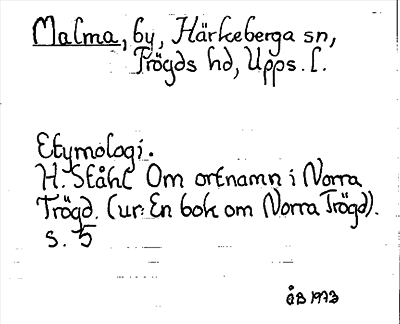 Malma, by, Härkeberga sn,
Trögds hd, Upps. l.
Etymologi.
H. Ståhl Om ortnamn i Norra
Trögd. (ur: En bok om Norra Trögd).
s. 5
ÅB 1973